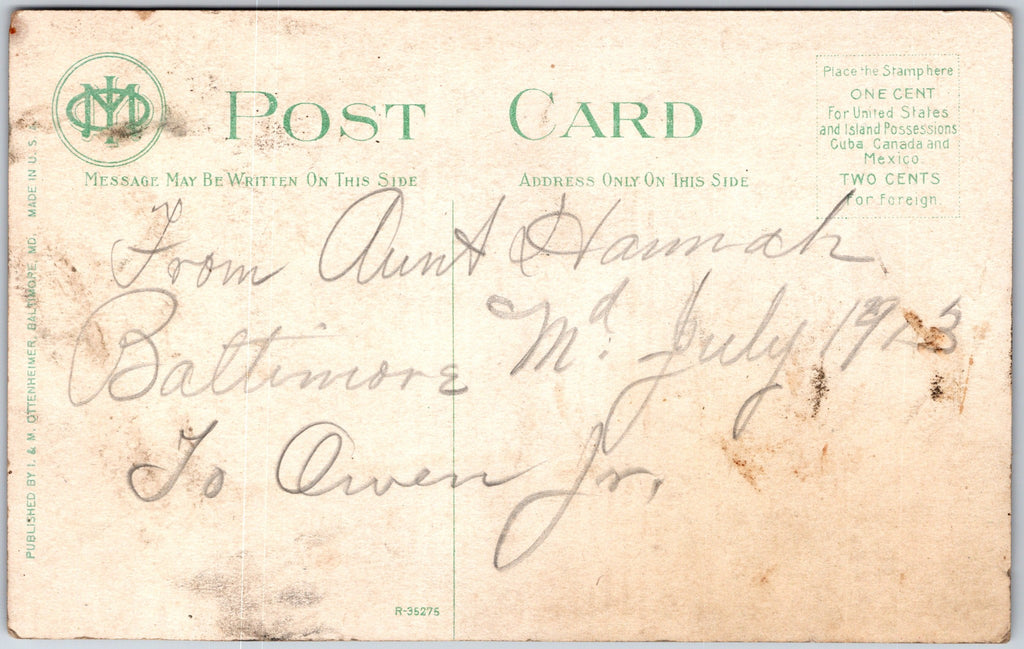 POST CARD
MESSAGE MAY BE WRITTEN ON THIS SIDE
ADDRESS ONLY ON THIS SIDE
Place the Stamp here
ONE CENT
For United States
and Island Possessions
Cuba, Canada and
Mexico.
TWO CENTS
For Foreign.
From Aunt Hannah
Baltimore Md. July 1913
To Owen Jr.
PUBLISHED BY I. & M. OTTENHEIMER, BALTIMORE, MD. MADE IN U.S.A.
R-35275